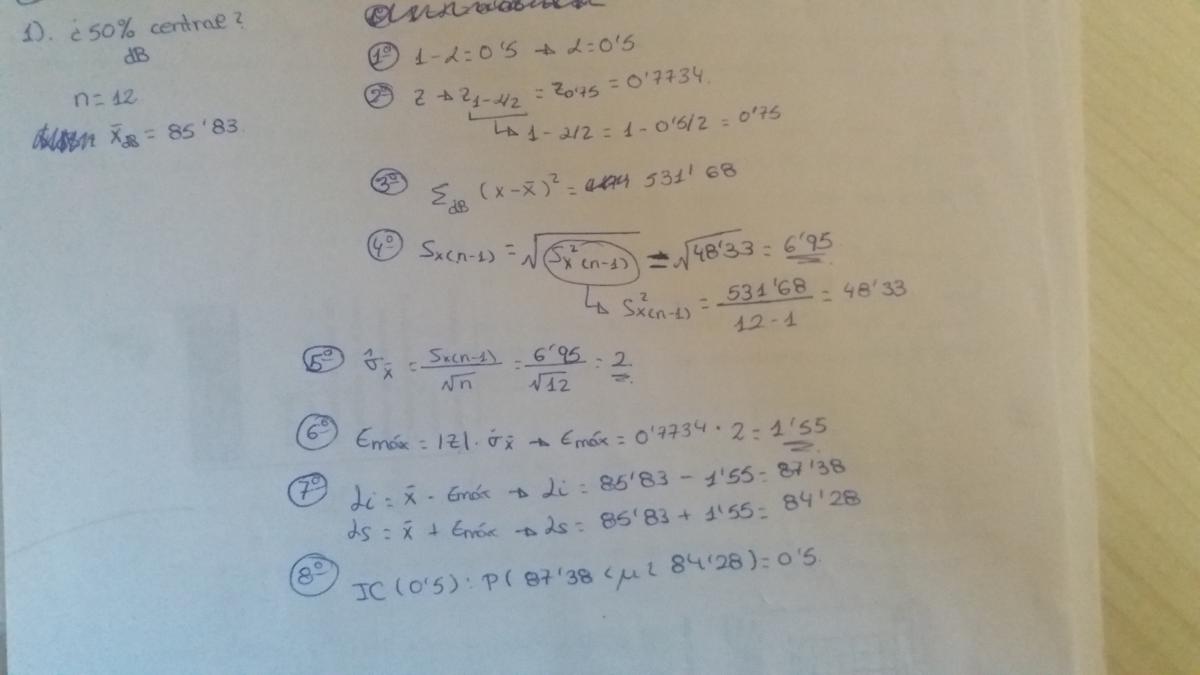 1). ¿50% central?
dB
n = 12
x̄dB = 85'83
1º 1-α = 0'5 → α = 0'5
2º Z → Z1-α/2 = Z0'75 = 0'7734
↳ 1-α/2 = 1-0'5/2 = 0'75
3º ΣdB (x-x̄)² = 531'68
4º Sx(n-1) = √S²x(n-1) = √48'33 = 6'95
↳ S²x(n-1) = 531'68 / 12-1 = 48'33
5º σ̂x̄ = Sx(n-1) / √n = 6'95 / √12 = 2
6º Emáx = |Z| · σ̂x̄ → Emáx = 0'7734 · 2 = 1'55
7º Li = x̄ - Emáx → Li = 85'83 - 1'55 = 87'38
Ls = x̄ + Emáx → Ls = 85'83 + 1'55 = 84'28
8º IC (0'5): P( 87'38 < μ < 84'28) = 0'5.